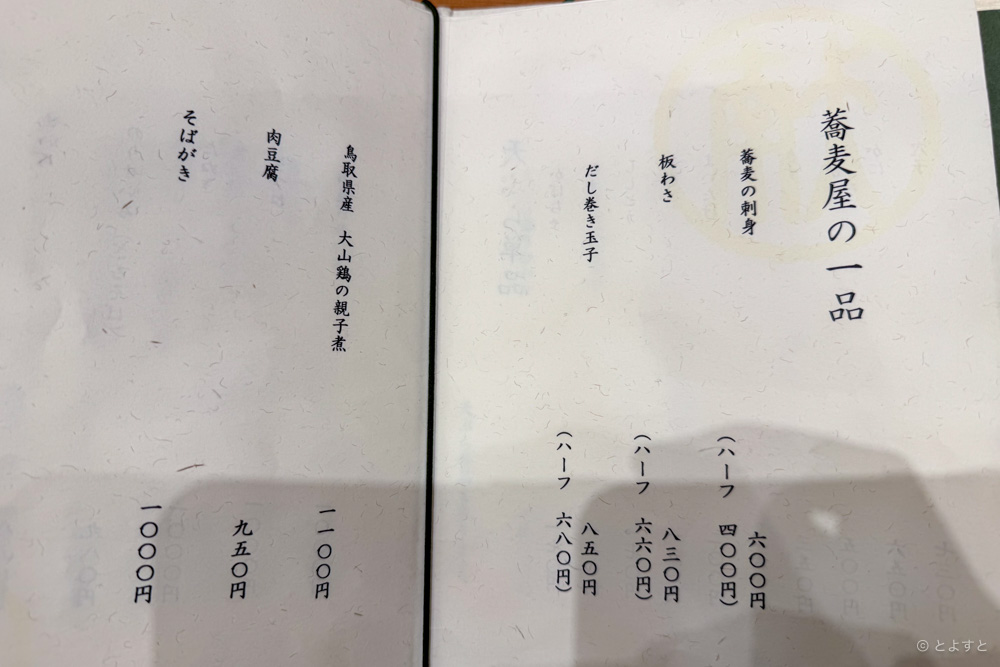 蕎麦屋の一品
蕎麦の刺身
六〇〇円
(ハーフ 四〇〇円)
板わさ
八三〇円
(ハーフ 六六〇円)
だし巻き玉子
八五〇円
(ハーフ 六八〇円)
鳥取県産 大山鶏の親子煮
一一〇〇円
肉豆腐
九五〇円
そばがき
一〇〇〇円
© とよすと